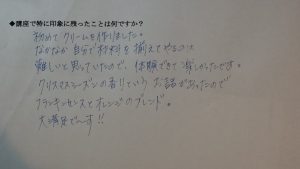 ◆講座で特に印象に残ったことは何ですか?
初めてクリームを作りました。
なかなか自分で材料を揃えてやることは
難しいと思っていたので、体験できて楽しかったです。
クリスマスシーズンの香りというお話があったので
フランキンセンスとオレンジのブレンド。
大満足で〜す!!